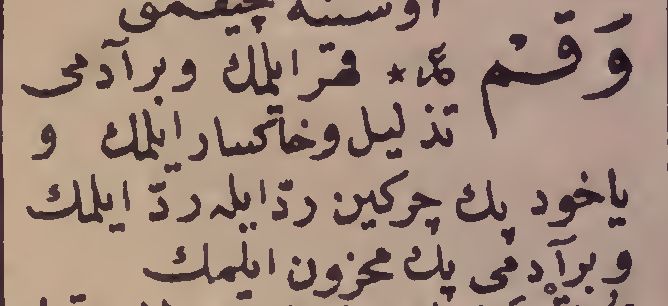 اوسنه چیقمق
وَقَمْ ع * قهر ایلمك و بر آدمی
تذلیل و خاکسار ایلمك و
یاخود پك چرکین ردّ ایله ردّ ایلمك
و بر آدمی پك محزون ایلیمك